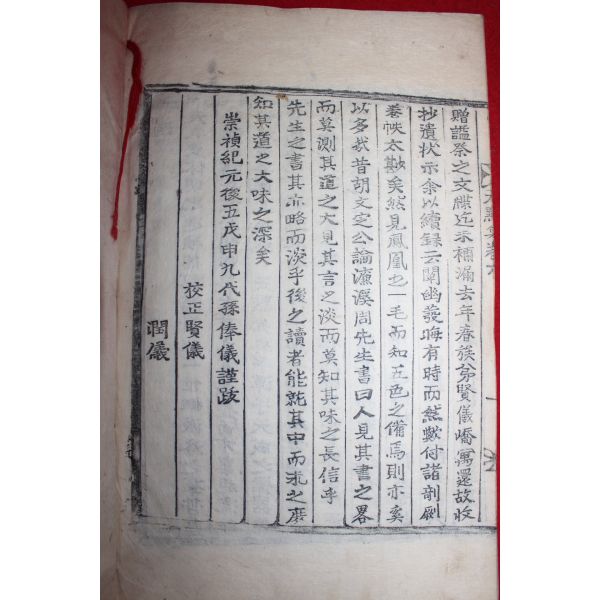 贈謚祭之文牒迄未補漏去年春族弟賢儀嶠寓還故收
抄遺狀示余以續錄云闡幽發晦有時而然歟付諸剞劂
卷帙太尠矣然見鳳凰之一毛而知五色之備焉則亦奚
以多哉昔胡文定公論濂溪周先生書曰人見其書之畧
而莫測其道之大見其言之淡而莫知其味之長信乎
先生之書其亦略而淡乎後之讀者能就其中而求之庶
知其道之大味之深矣
崇禎紀元後五戊申九代孫俸儀謹跋
校正賢儀
潤儀